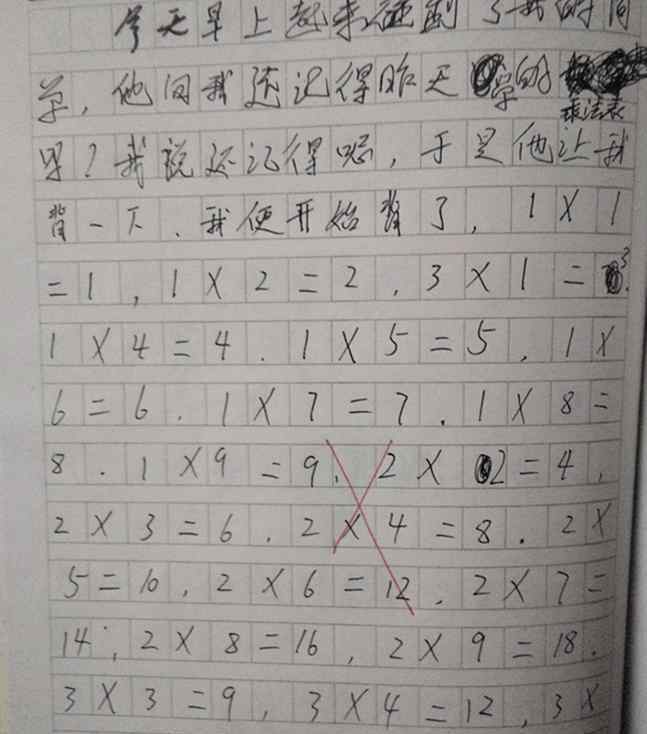 今天早上起来碰到了我的同
学，他问我还记得昨天学的
乘法表
吗？我说还记得呢，于是他让我
背一下、我便开始背了，1×1
=1，1×2=2，3×1=3.
1×4=4．1×5=5，1×
6=6．1×7=7．1×8=
8．1×9=9、2×2=4，
2×3=6．2×4=8．2×
5=10，2×6=12，2×7=
14，2×8=16，2×9=18．
3×3=9，3×4=12，3×